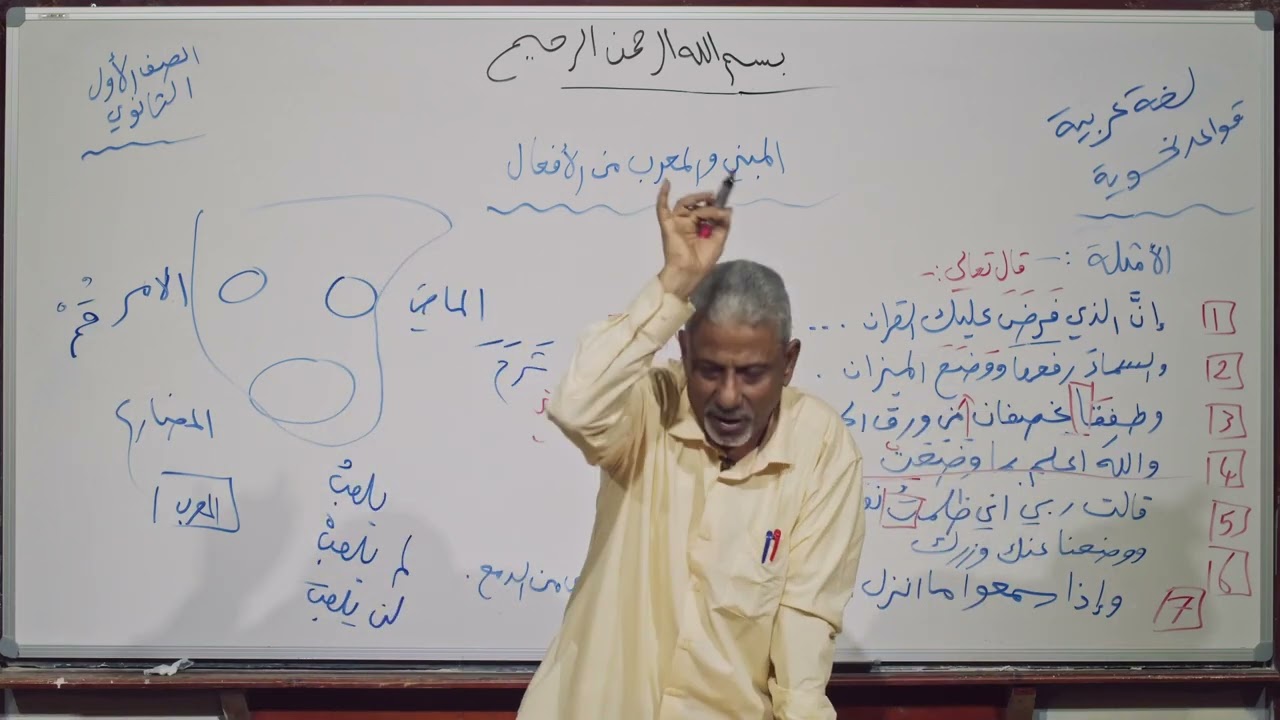 بسم الله الرحمن الرحيم
لغة عربية
قواعد نحوية
الصف الأول
الثانوي
المبني والمعرب من الأفعال
الأمثلة :- قال تعالى :-
1 إنَّ الذي فَرَضَ عليك القران ...
2 والسماءَ رفعها ووَضَعَ الميزان .
3 وطفِقَا يخصفان من ورق
4 والله اعلم بما وَضَعَتْ
5 قالت ربي اني ظلمتُ
6 ووضعنا عنك وزرك
7 وإذا سمعوا ما انزل من الدمع .
الماضي
شَرَحَ
الامر
قُمْ
المضارع
المعرب
يلعبُ
لم يلعبْ
لن يلعبَ